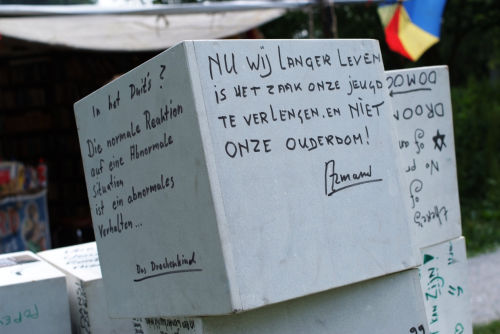 In het Duits?
Die normale Reaktion
auf eine Abnormale
situation
ist ein abnormales
Verhalten...
Das Drachenkind
NU WIJ LANGER LEVEN
IS HET ZAAK ONZE JEUGD
TE VERLENGEN. EN NIET
ONZE OUDERDOM!
DOMOD
DROOM
of
No
of
ZIJN